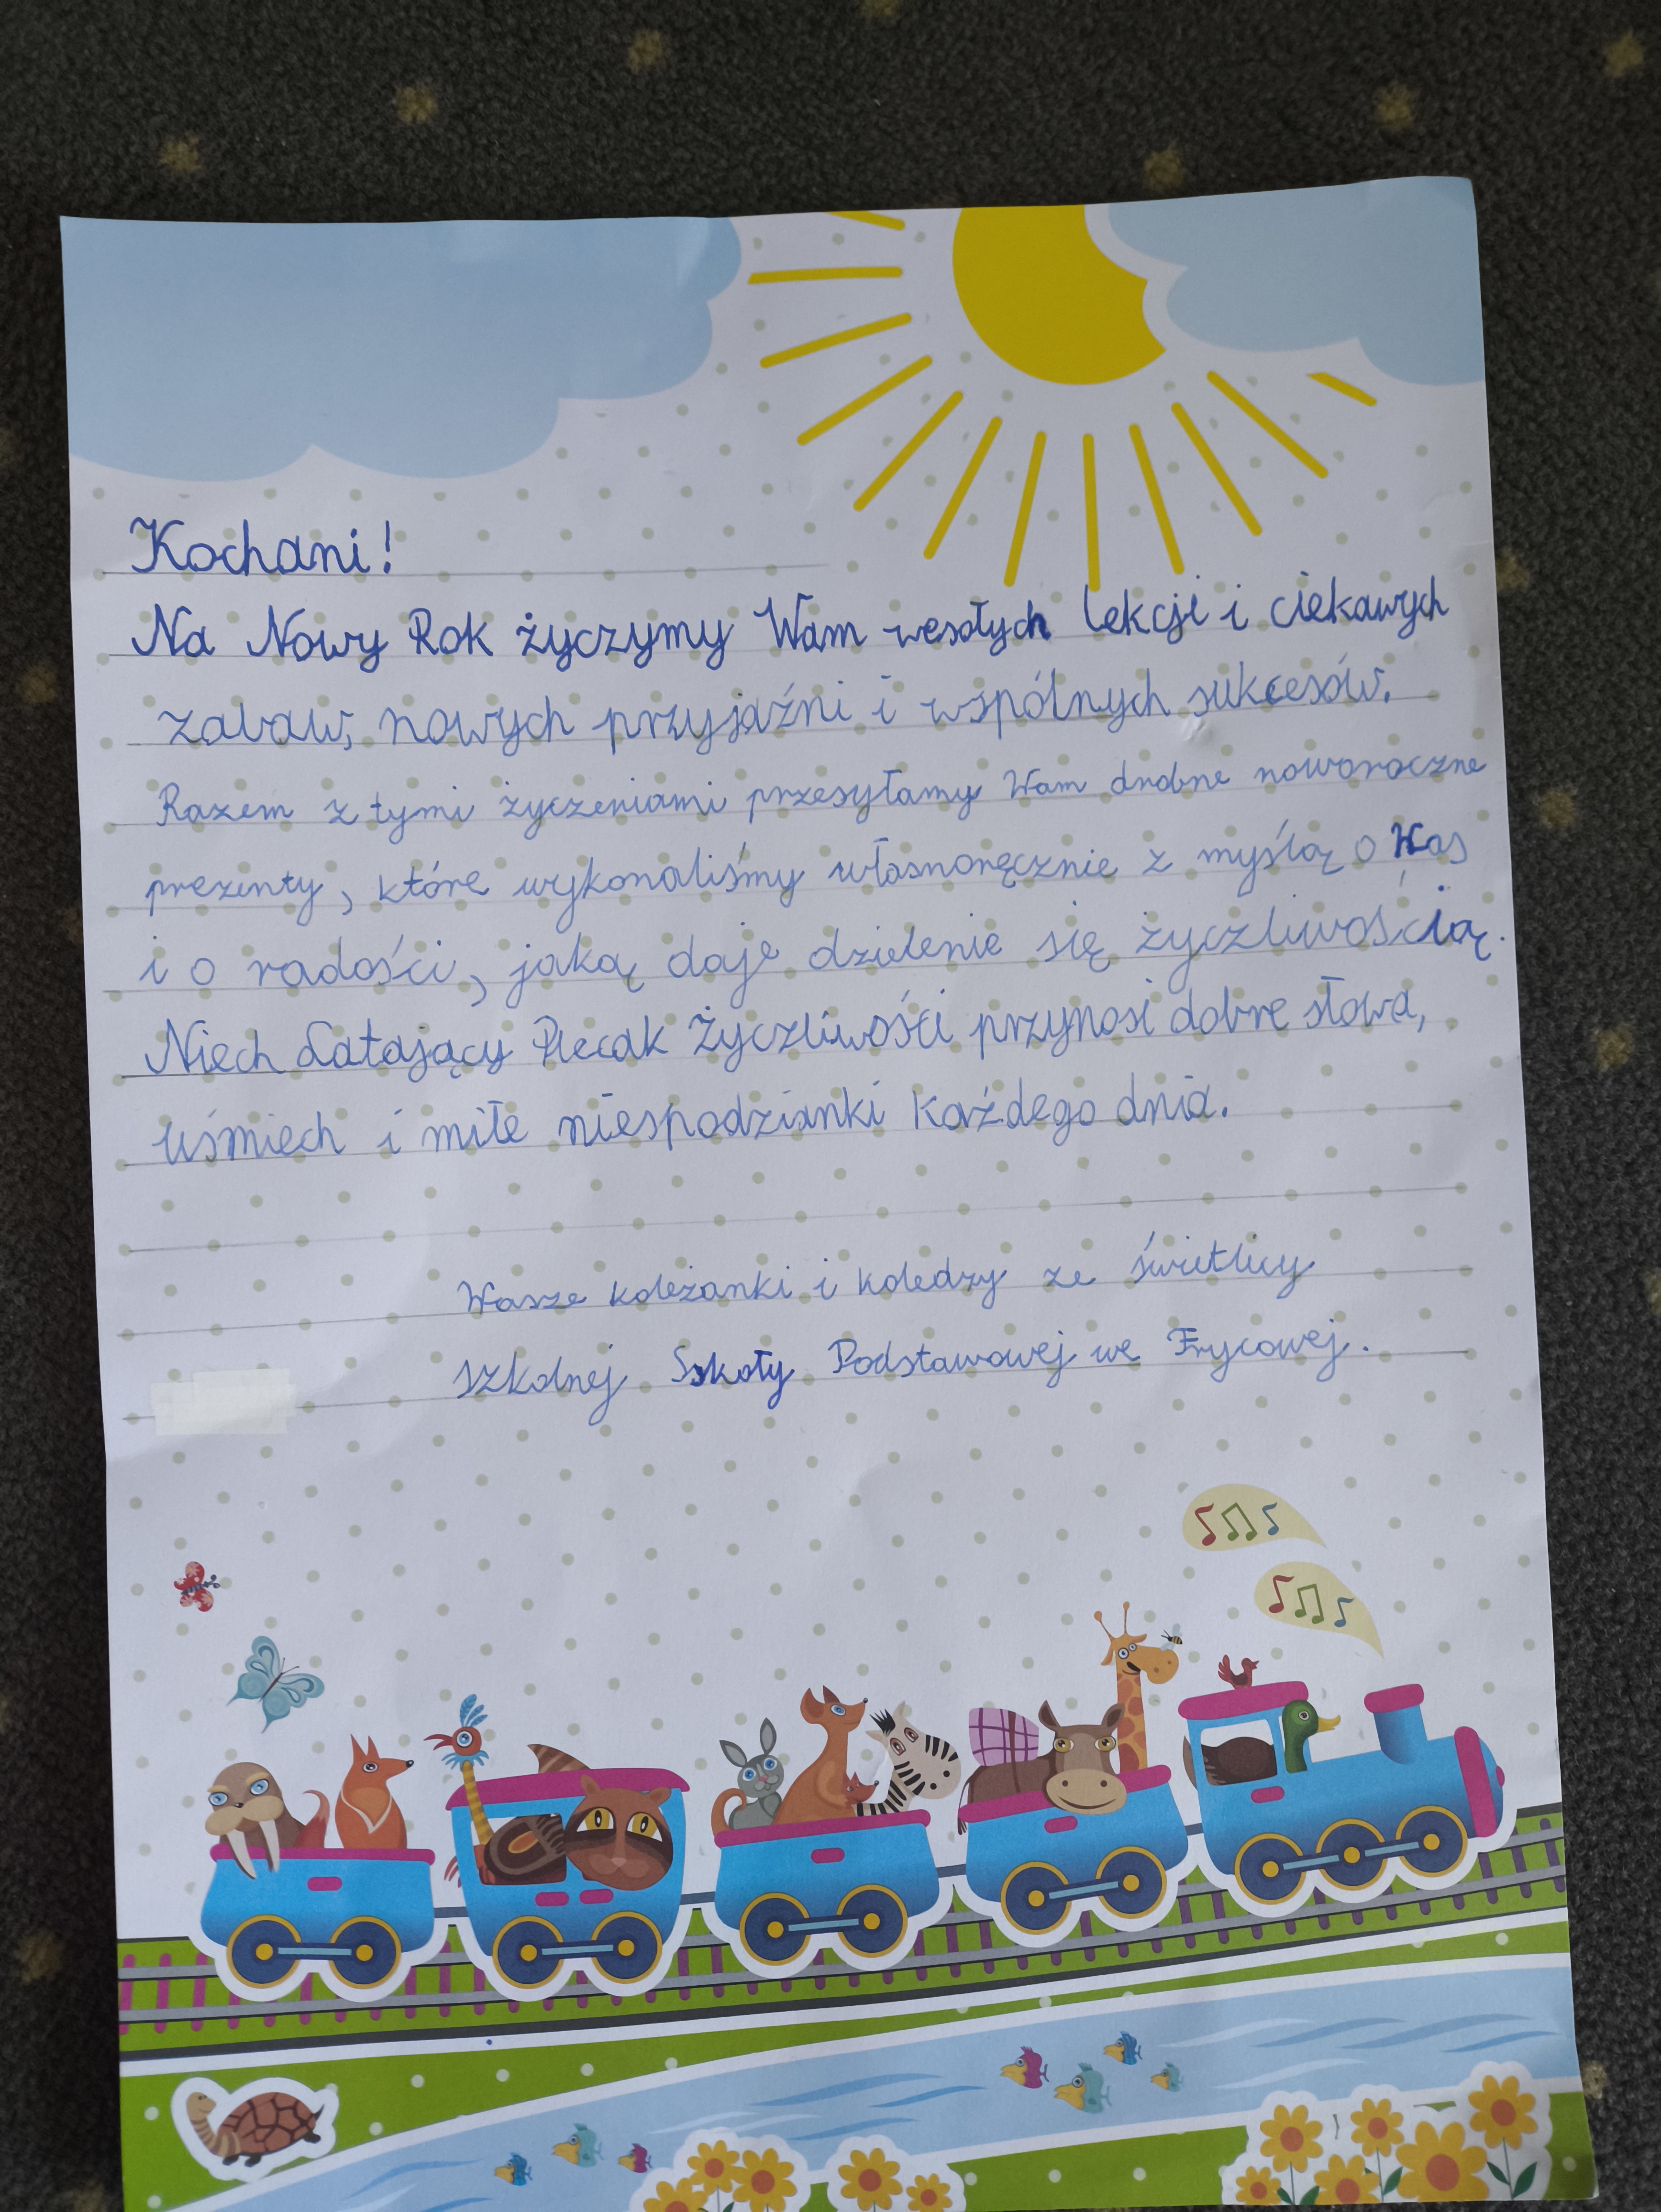 Kochani!
Na Nowy Rok życzymy Wam wesołych lekcji i ciekawych
zabaw, nowych przyjaźni i wspólnych sukcesów.
Razem z tymi życzeniami przesyłamy Wam drobne noworoczne
prezenty, które wykonaliśmy własnoręcznie z myślą o Was
i o radości, jaką daje dzielenie się życzliwością.
Niech Latający Plecak Życzliwości przynosi dobre słowa,
uśmiech i miłe niespodzianki każdego dnia.
Wasze koleżanki i koledzy ze świetlicy
szkolnej Szkoły Podstawowej we Frycowej.